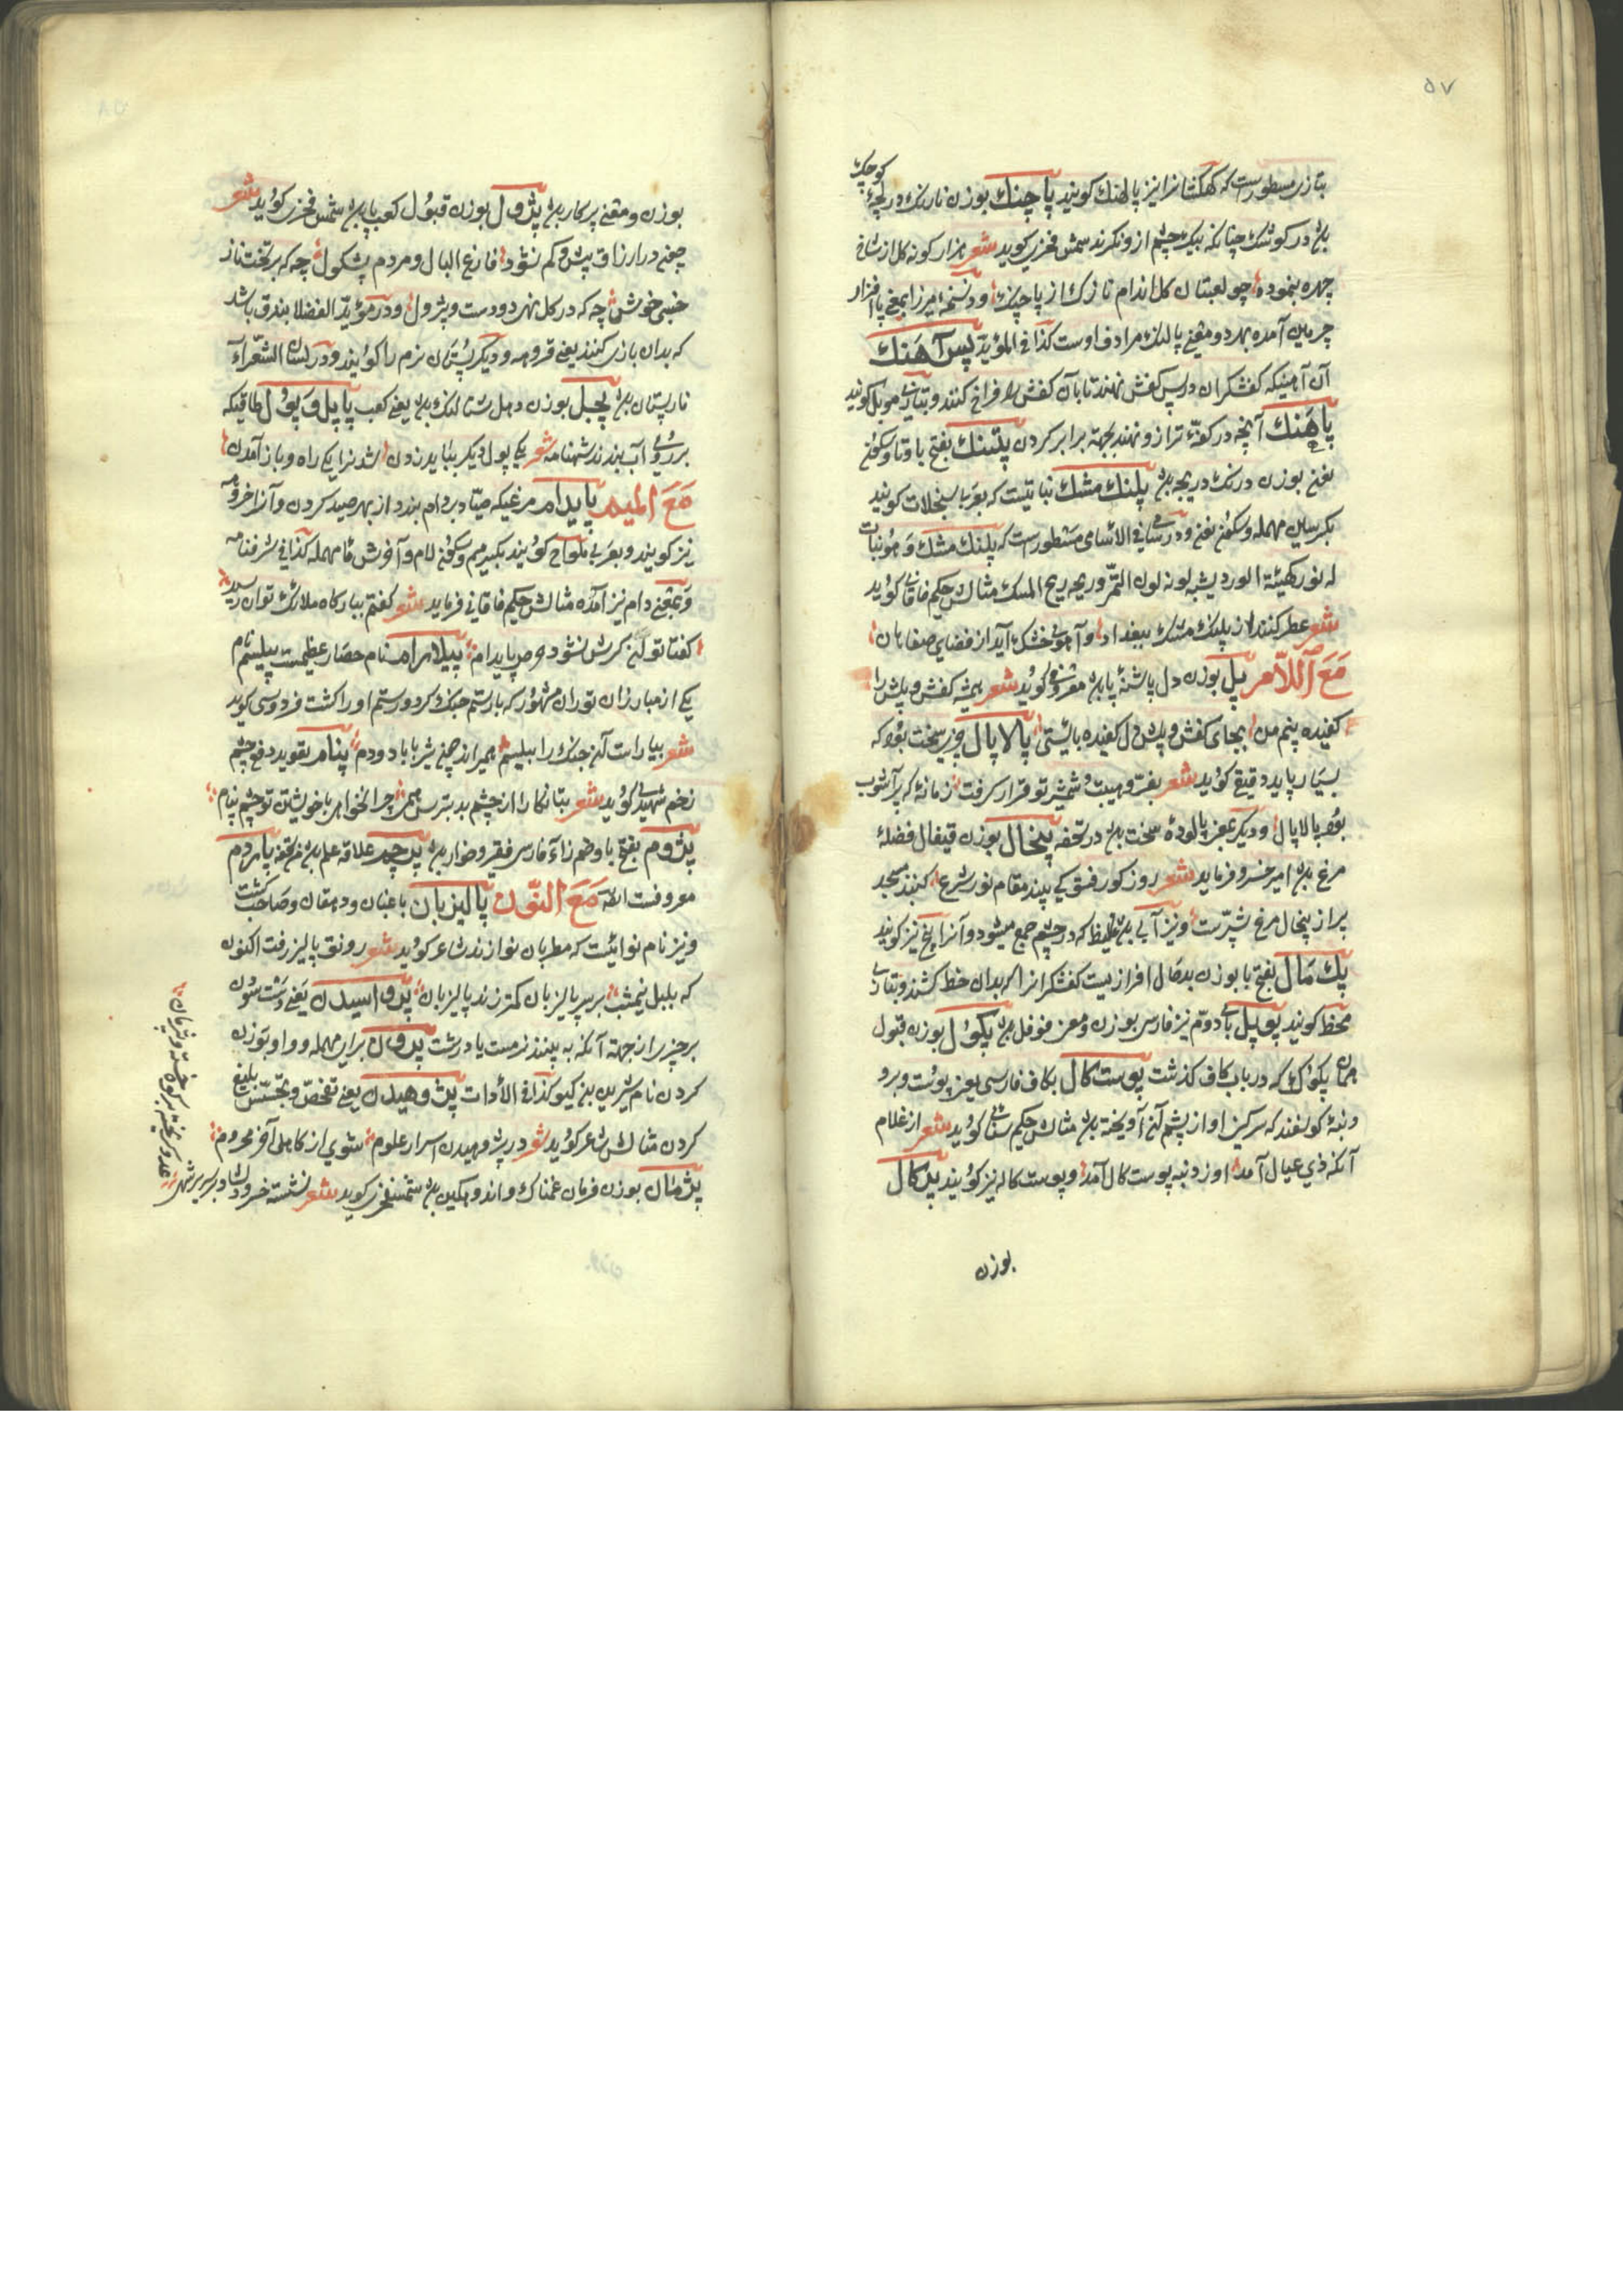 ۵۷
بتازی مسطورست که کهکشانرا نیز پالهنك کویند پاچنك بوزن نارنك دریچهٔ کوچك
باشد در کوشك چنانکه بیك چشم ازو نکرند شمس فخری کوید شعر هزار کونه کل از شاخ
چهره بنموده چو لعبتان کل اندام نازك از پاچنك ودر نسخهٔ میرزا بمعنی پا افزار
چرمین آمده بهر دو معنی پالنك مرادف اوست کذا فی المؤید پس آهنك
آن آهنیکه کفشکران در پس کفش نهند تا بآن کفش را فراخ کنند وبتازی موبل کویند
پاهنك آنچه در کفهٔ ترازو نهند بجهة برابر کردن پتنك بفتح با وتا وسکون
نون بوزن درنك دریچه باشد پلنك مشك نباتیست که بعربا سنجلات کویند
بکسر سین مهمله وسکون نون ودر سامی فی الاسامی مسطورست که پلنك مشك وهو نبات
له نور کهیئة الورد یشبه لونه لون التمر وریحه ریح المسك مثالش حکیم خاقانی کوید
شعر عطر کنند از پلنك مشك ببغداد وآهوی خشك آید از فضای صفاهان
مع اللام پل بوزن دل پاشنهٔ پا باشد معروفی کوید شعر همیشه کفش وپلش را
کفیده بینم من بجای کفش وپلش دل کفیده بایستی پالاپال چیزی سخت بود که
بسیار پاید دقیقی کوید شعر بفر وهیبت شمشیر تو قرار کرفت زمانهٔ که پرآشوب
بود پالاپال ودیکر بمعنی پالودهٔ سخت باشد در تحفه پیخال بوزن قیفال فضلهٔ
مرغ باشد امیر خسرو فرماید شعر روز کور فسق کی بیند مقام نور شرع کنبذ مسجد
پر از پیخال مرغ شپرست ونیز آبی باشد غلیظ که در چشم جمع میشود وآنرا پیخ نیز کویند
پك مال بفتح با بوزن بدحال افرازیست کفشکرانرا که بدان خط کشند وبتازی
مخط کویند پوپل بای دوم نیز فارسی بوزن ومعنی فوفل باشد پکول بوزن قبول
همان پکوك که در باب کاف کذشت پوست کال بکاف فارسی یعنی پوست وبرو
دنبهٔ کوسفند که سرکین او از پشم آن آویخته باشد مثالش حکیم سنائی کوید شعر از غلام
آنکه ذی عیال آمد اوز دنبه پوست کال آمد وپوست کاله نیز کویند پرکال
بوزن
بوزن ومعنی پرکار باشد پژول بوزن قبول کعب پا باشد شمس فخری کوید شعر
چنی در ارزاق پیش وکم نشود فارغ البال ومردم پشکول چه که بر تخت ناز
خسبی خوش چه که در کل نهی دو دست وپژول ودر مؤید الفضلا بندق باشد
که بدان بازی کنند یعنی قروهه ودیکر پستان نرم را کویند ودر لسان الشعراء
نارپستان باشد پجبل بوزن دهل شتالنك باشد یعنی کعب پا پل وپول طاقیکه
بر روی آب بندند شهنامه شعر یکی پول دیکر بباید زدن شدنرا یکی راه وباز آمدن
مع المیم پایدام مرغیکه صیاد بر دام بندد از بهر صید کردن وآنرا خروهه
نیز کویند وبعربی ملواح کویند بکسر میم وسکون لام وآخرش حا مهمله کذا فی شرفنامه
وبمعنی دام نیز آمده مثالش حکیم خاقانی فرماید شعر کفتم ببارکاه ملائك توان رسید
کفتا توان کرش نشود حرص پایدام پیلارام نام حصار عظیمست پیلسم نام
یکی از مبارزان توران مشهور که با رستم جنك کرد ورستم او را کشت فردوسی کوید
شعر بیاراست آن جنك را پیلسم همی راند چون شیر با باد ودم پنام تعوید دفع چشم
زخم شهیدی کوید شعر بتا نکارا از چشم بد بترس همی چرا نخواهی با خویشتن تو چشم پنام
پژوم بفتح با وضم زاء فارسی فقیر وخوار باشد پرچم علاقه علم باشد فی تحفه پاردم
معروفست الله مع النون پالیزبان باغبان ودهقان وصاحب کشت
ونیز نام نوائیست که مطربان نوازند شاعر کوید شعر رونق پالیز رفت اکنون
که بلبل نیمشب بر سر پالیزبان کمتر زند پالیزبان پرواسیدن یعنی دست سودن
بر چیز برای جهة آنکه به بینند نرمست یا درشت پروان برای مهمله وواو بوزن
کردن نام شیرین بنی کیو کذا فی الأدات پژوهیدن یعنی تفحص وتجسس بلیغ
کردن مثالش شاعر کوید شعر در پژوهیدن اسرار علوم شوی از کاهلی آخر محروم
پژمان بوزن فرمان غمناك واندوهکین باشد شمس فخری کوید شعر نشسته خسرو دلشاد بر سریر شهی
عدو کریخته بر کوه خسته وپژمان